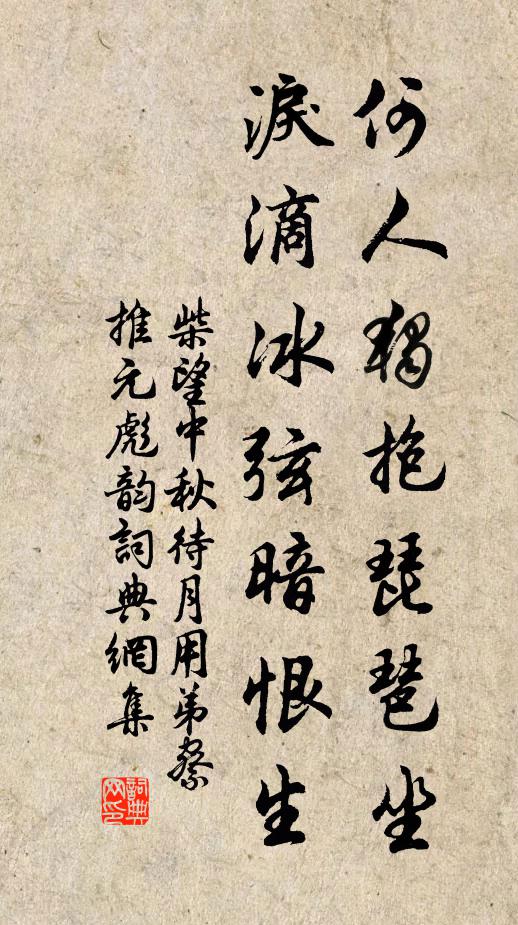 何人獨抱琵琶坐
淚滴冰弦暗恨生
柴望中秋待月用弟察
推元彪韵詞典網集
詞典
网印